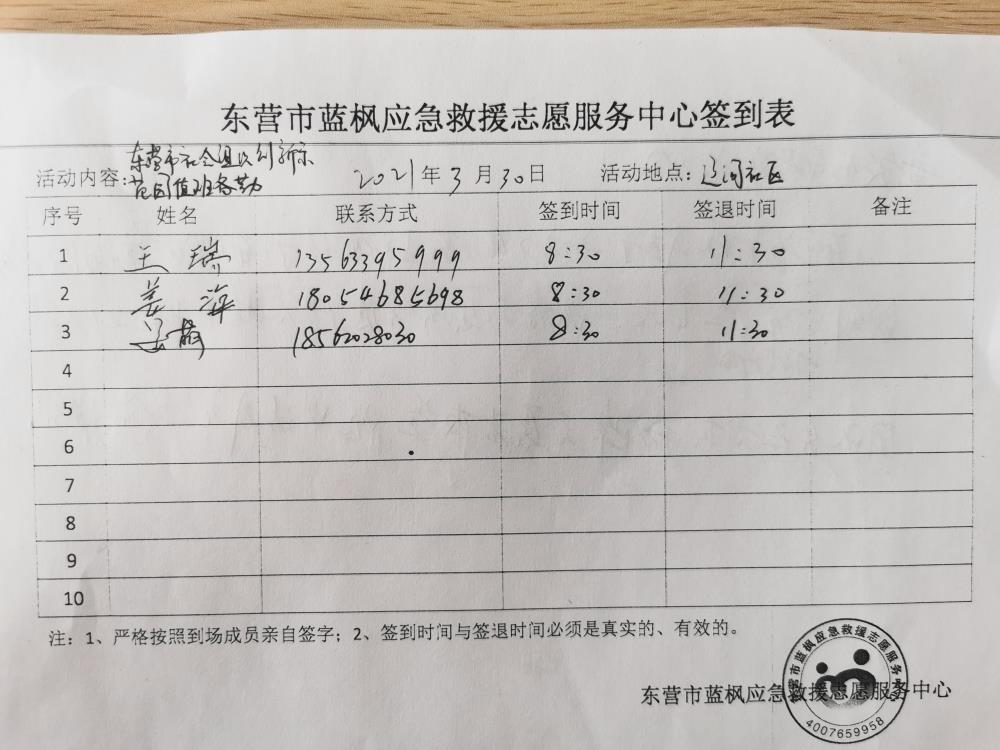 东营市蓝枫应急救援志愿服务中心签到表
活动内容: 东营市社会组织创新示
范园值班备勤
2021年3月30日 活动地点: 辽河社区
序号 姓名 联系方式 签到时间 签退时间 备注
1 王瑞 13563395999 8:30 11:30
2 姜海 18054685698 8:30 11:30
3 18562028030 8:30 11:30
4
5
6
7
8
9
10
注: 1、严格按照到场成员亲自签字; 2、签到时间与签退时间必须是真实的、有效的。
东营市蓝枫应急救援志愿服务中心
东营市蓝枫应急救援志愿服务中心
4007659958